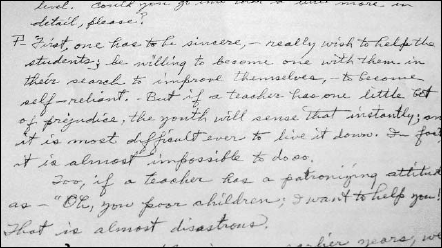 level. Could you go into that a little more in
detail, please?
P- First, one has to be sincere, - really wish to help the
students; be willing to become one with them in
their search to improve themselves, - to become
self-reliant. - But if a teacher has one little bit
of prejudice, the youth will sense that instantly; and
it is most difficult ever to live it down. In fact
it is almost impossible to do so.
Too, if a teacher has a patronizing attitude
as - "Oh, you poor children; I want to help you!"
That is almost disastrous.
earlier years, we